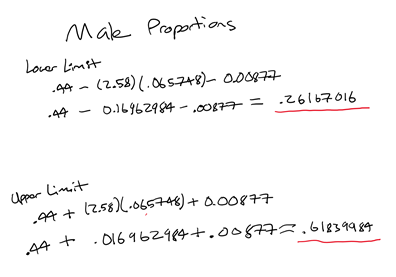 Male Proportions
Lower Limit
.44 - (2.58)(.065748) - 0.00877
.44 - 0.16962984 - .00877 = .26167016
Upper Limit
.44 + (2.58)(.065748) + 0.00877
.44 + .016962984 + .00877 = .61839984